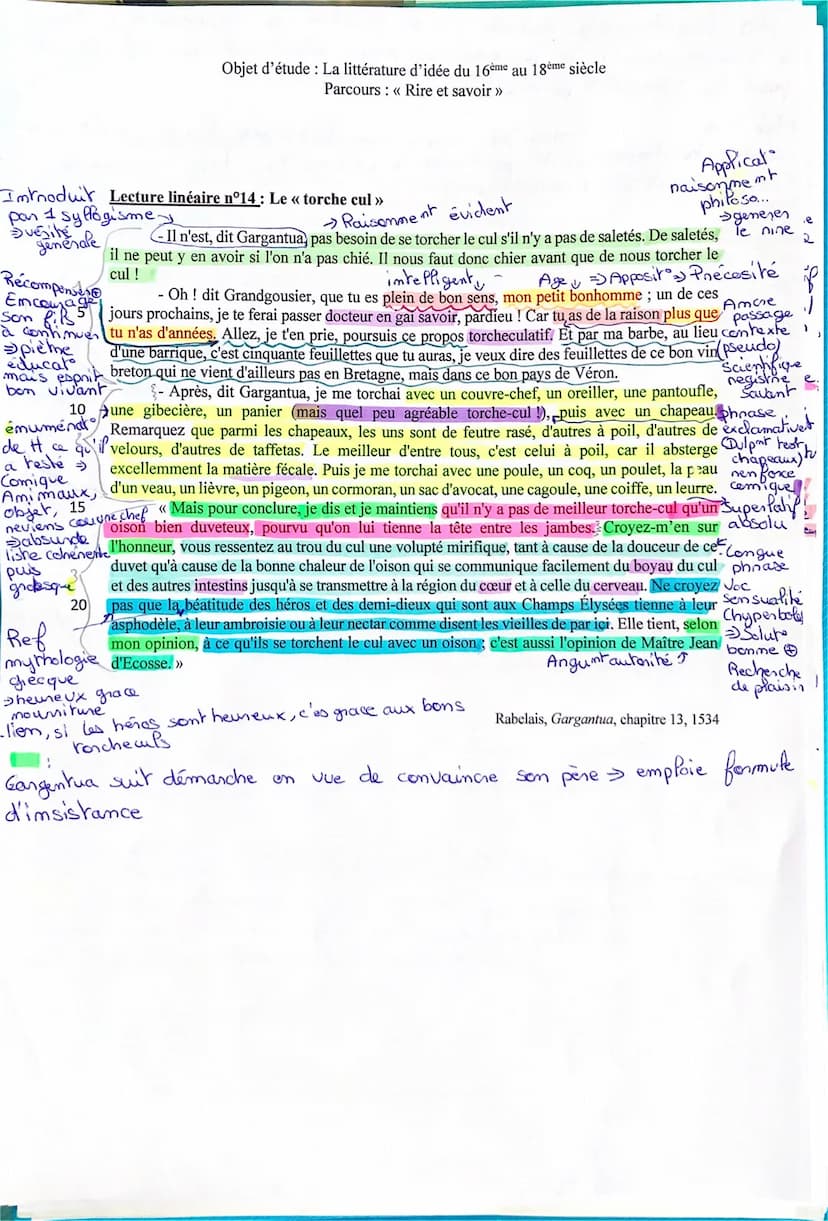 Objet d'étude : La littérature d'idée du 16ème au 18ème siècle
Parcours : « Rire et savoir »
Applicat°
raisonnement
philoso...
⇒ generer
le rire
Introduit
par 1 syllogisme
⇒ vérité
générale
Lecture linéaire n°14 : Le « torche cul »
→ Raisonment évident
- Il n'est, dit Gargantua, pas besoin de se torcher le cul s'il n'y a pas de saletés. De saletés,
il ne peut y en avoir si l'on n'a pas chié. Il nous faut donc chier avant que de nous torcher le
cul !
intelligent
Age ⇒ Apposit° ⇒ Précosité
Récompenses ⊕
Encourage
son fils
à continuer
⇒ piètre
éducat°
mais esprit
bon vivant
- Oh ! dit Grandgousier, que tu es plein de bon sens, mon petit bonhomme ; un de ces
5 jours prochains, je te ferai passer docteur en gai savoir, pardieu ! Car tu as de la raison plus que
tu n'as d'années. Allez, je t'en prie, poursuis ce propos torcheculatif. Et par ma barbe, au lieu
d'une barrique, c'est cinquante feuillettes que tu auras, je veux dire des feuillettes de ce bon vin
breton qui ne vient d'ailleurs pas en Bretagne, mais dans ce bon pays de Véron.
Amcre
passage
contexte
(pseudo)
Scientifique
registre
savant
- Après, dit Gargantua, je me torchai avec un couvre-chef, un oreiller, une pantoufle,
10 une gibecière, un panier (mais quel peu agréable torche-cul !), puis avec un chapeau.
Remarquez que parmi les chapeaux, les uns sont de feutre rasé, d'autres à poil, d'autres de
velours, d'autres de taffetas. Le meilleur d'entre tous, c'est celui à poil, car il absterge
excellemment la matière fécale. Puis je me torchai avec une poule, un coq, un poulet, la peau
d'un veau, un lièvre, un pigeon, un cormoran, un sac d'avocat, une cagoule, une coiffe, un leurre.
énumérat°
de tt ce qu'il
a testé ⇒
Comique
Animaux,
objet,
couvre chef
⇒ absurde
liste cohérente
puis
grotesque
phrase
exclamative
chapeaux)
renforce
comique
15 « Mais pour conclure, je dis et je maintiens qu'il n'y a pas de meilleur torche-cul qu'un
oison bien duveteux, pourvu qu'on lui tienne la tête entre les jambes. Croyez-m'en sur
l'honneur, vous ressentez au trou du cul une volupté mirifique, tant à cause de la douceur de ce
duvet qu'à cause de la bonne chaleur de l'oison qui se communique facilement du boyau du cul
et des autres intestins jusqu'à se transmettre à la région du cœur et à celle du cerveau. Ne croyez
20 pas que la béatitude des héros et des demi-dieux qui sont aux Champs Élysées tienne à leur
asphodèle, à leur ambroisie ou à leur nectar comme disent les vieilles de par ici. Elle tient, selon
mon opinion, à ce qu'ils se torchent le cul avec un oison ; c'est aussi l'opinion de Maître Jean
d'Ecosse. »
Superlatif
absolu
Longue
phrase
Voc
sensualité
(hyperbole)
⇒ Solut°
bonne ⊕
Recherche
de plaisir !
Argunt autorité
Ref
mythologie
grecque
→ heureux grace
nourriture
lien, si les héros sont heureux, c'es grace aux bons
torcheculs
Rabelais, Gargantua, chapitre 13, 1534
:
Gargentua suit démarche en vue de convaincre son père ⇒ emploie formule
d'insistance